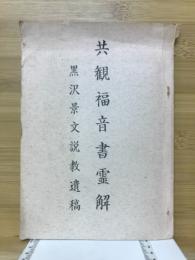 共観福音書霊解
黒沢景文説教遺稿